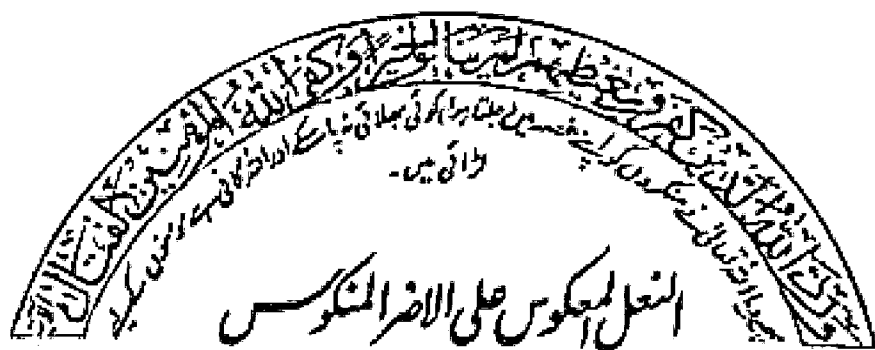 ورد اللہ الذین کفروا بغیظھم لم ینالوا خیرا وکفی اللہ المؤمنین القتال
پھیرا اللہ تعالیٰ نے منکروں کو اپنے غصہ میں جلتا ہوا کوئی بھلائی نہ پاسکے اور اللہ کافی ہے مومنوں کیلئے
لڑائی میں۔
النعل المعکوس علی الاضر المنکوس